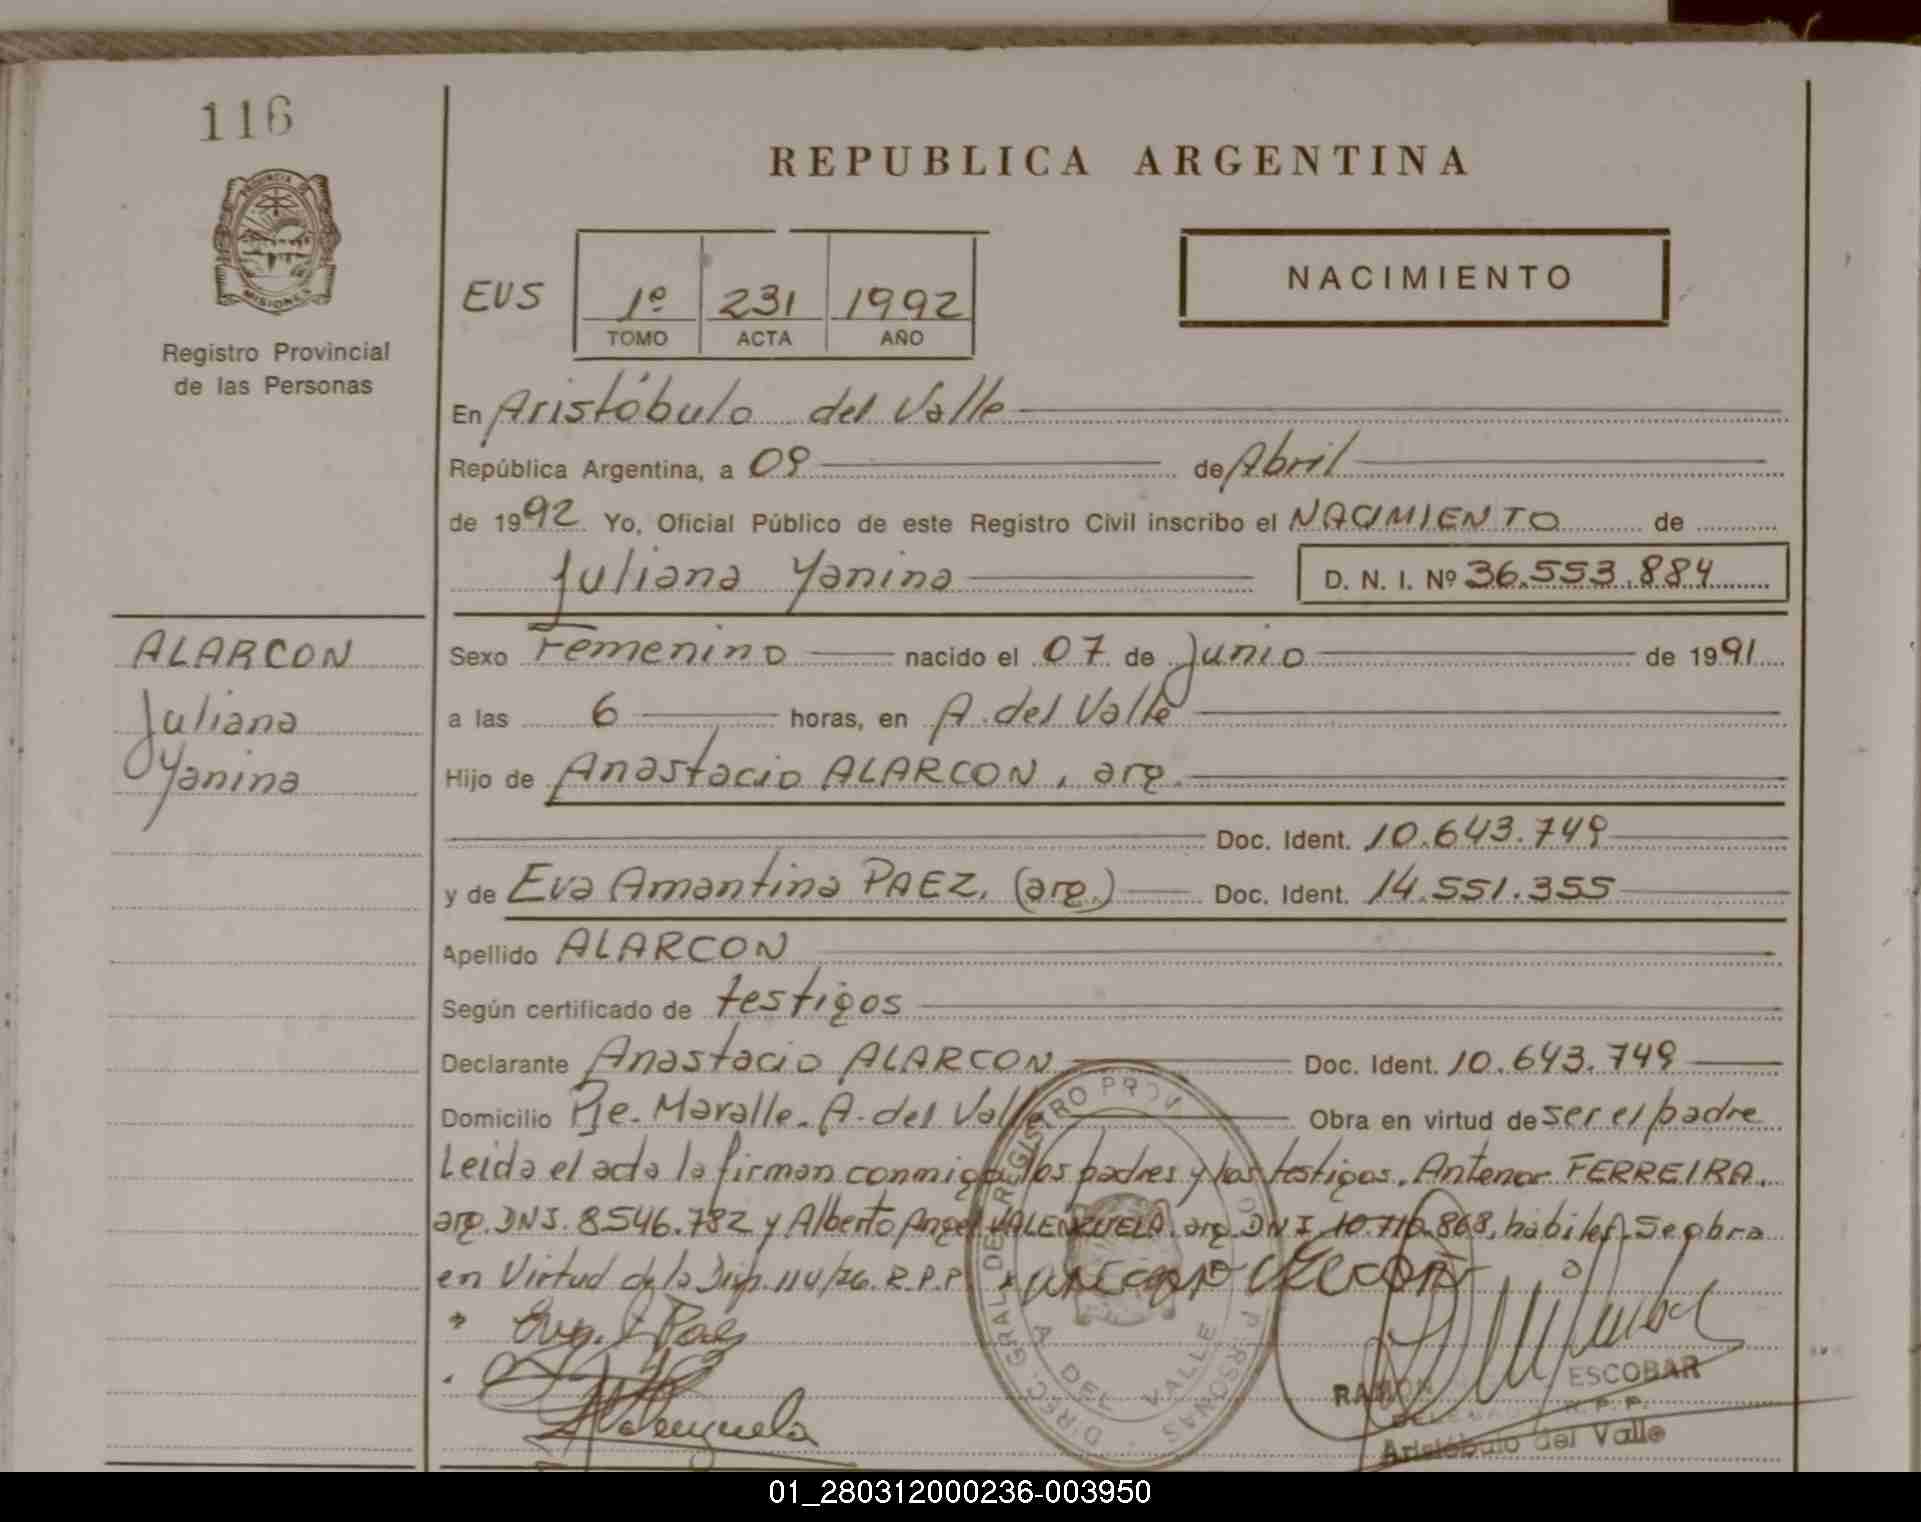 116
REPUBLICA ARGENTINA
PROVINCIA DE
MISIONES
Registro Provincial
de las Personas
NACIMIENTO
EUS
1º 231 1992
TOMO ACTA AÑO
En Aristóbulo del Valle
República Argentina, a 09 de Abril
de 1992 Yo, Oficial Público de este Registro Civil inscribo el NACIMIENTO de
Juliana Yanina D. N. I. Nº 36.553.884
ALARCON
Juliana
Yanina
Sexo Femenino nacido el 07 de Junio de 1991
a las 6 horas, en A. del Valle
Hijo de Anastacio ALARCON, arg.
Doc. Ident. 10.643.749
y de Eva Amantina PAEZ, (arg.) Doc. Ident. 14.551.355
Apellido ALARCON
Según certificado de testigos
Declarante Anastacio ALARCON Doc. Ident. 10.643.749
Domicilio Pje. Maralle. A. del Valle Obra en virtud de ser el padre
Leida el acta la firman conmigo los padres y los testigos, Antenor FERREIRA,
arg. DNI. 8546.782 y Alberto Angel VALENZUELA, arg. DNI 10.710.868, hábiles. Se obra
en Virtud de la Disp. 114/76. R.P.P.
Valenzuela
DIREC. GRAL DE REGISTRO PROV PERSONAS
A DEL VALLE
RAMON ESCOBAR
R. P. P.
Aristóbulo del Valle
01_280312000236-003950